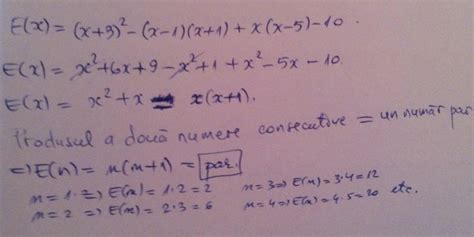 E(x) = (x+3)² - (x-1)(x+1) + x(x-5) - 10.
E(x) = x² + 6x + 9 - x² + 1 + x² - 5x - 10.
E(x) = x² + x = x(x+1).
Produsul a două numere consecutive = un număr par
⇒ E(n) = n(n+1) = par.
n = 1 ⇒ E(n) = 1·2 = 2 n = 3 ⇒ E(n) = 3·4 = 12
n = 2 ⇒ E(n) = 2·3 = 6 n = 4 ⇒ E(n) = 4·5 = 20 etc.